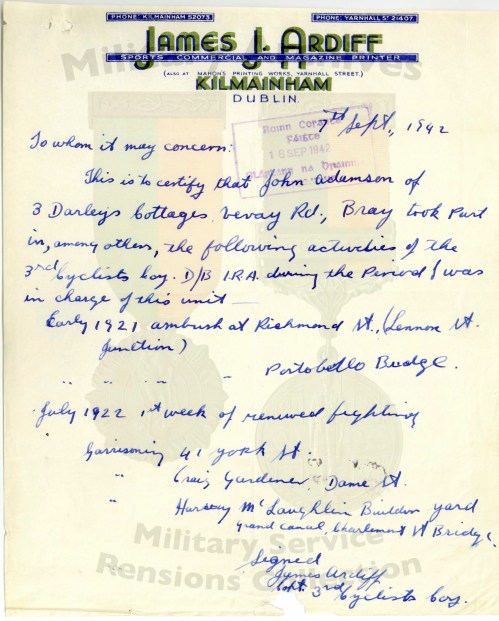 PHONE: KILMAINHAM 52073.
PHONE: YARNHALL ST 21407.
JAMES J. ARDIFF
SPORTS COMMERCIAL AND MAGAZINE PRINTER
(ALSO AT MARON'S PRINTING WORKS, YARNHALL STREET.)
KILMAINHAM
DUBLIN.
7th Sept., 1942
ROINN COSANTA
18 SEP 1942
To whom it may concern:
This is to certify that John Adamson of
3 Darleys Cottages, Vevay Rd., Bray took Part
in, among others, the following activities of the
3rd Cyclists Coy. D/B I.R.A. during the Period I was
in charge of this unit —
Early 1921 ambush at Richmond St., (Lennox St.
Junction)
" " " " Portobello Bridge.
July 1922 1st week of renewed fighting
Garrisoning 41 York St.
" Craig Gardener Dame St.
" McLaughlin Builders yard
Grand Canal, Charlemont St Bridge.
Signed
James Ardiff
Capt. 3rd Cyclists Coy.
Military Archives
Military Service
Pensions Collection